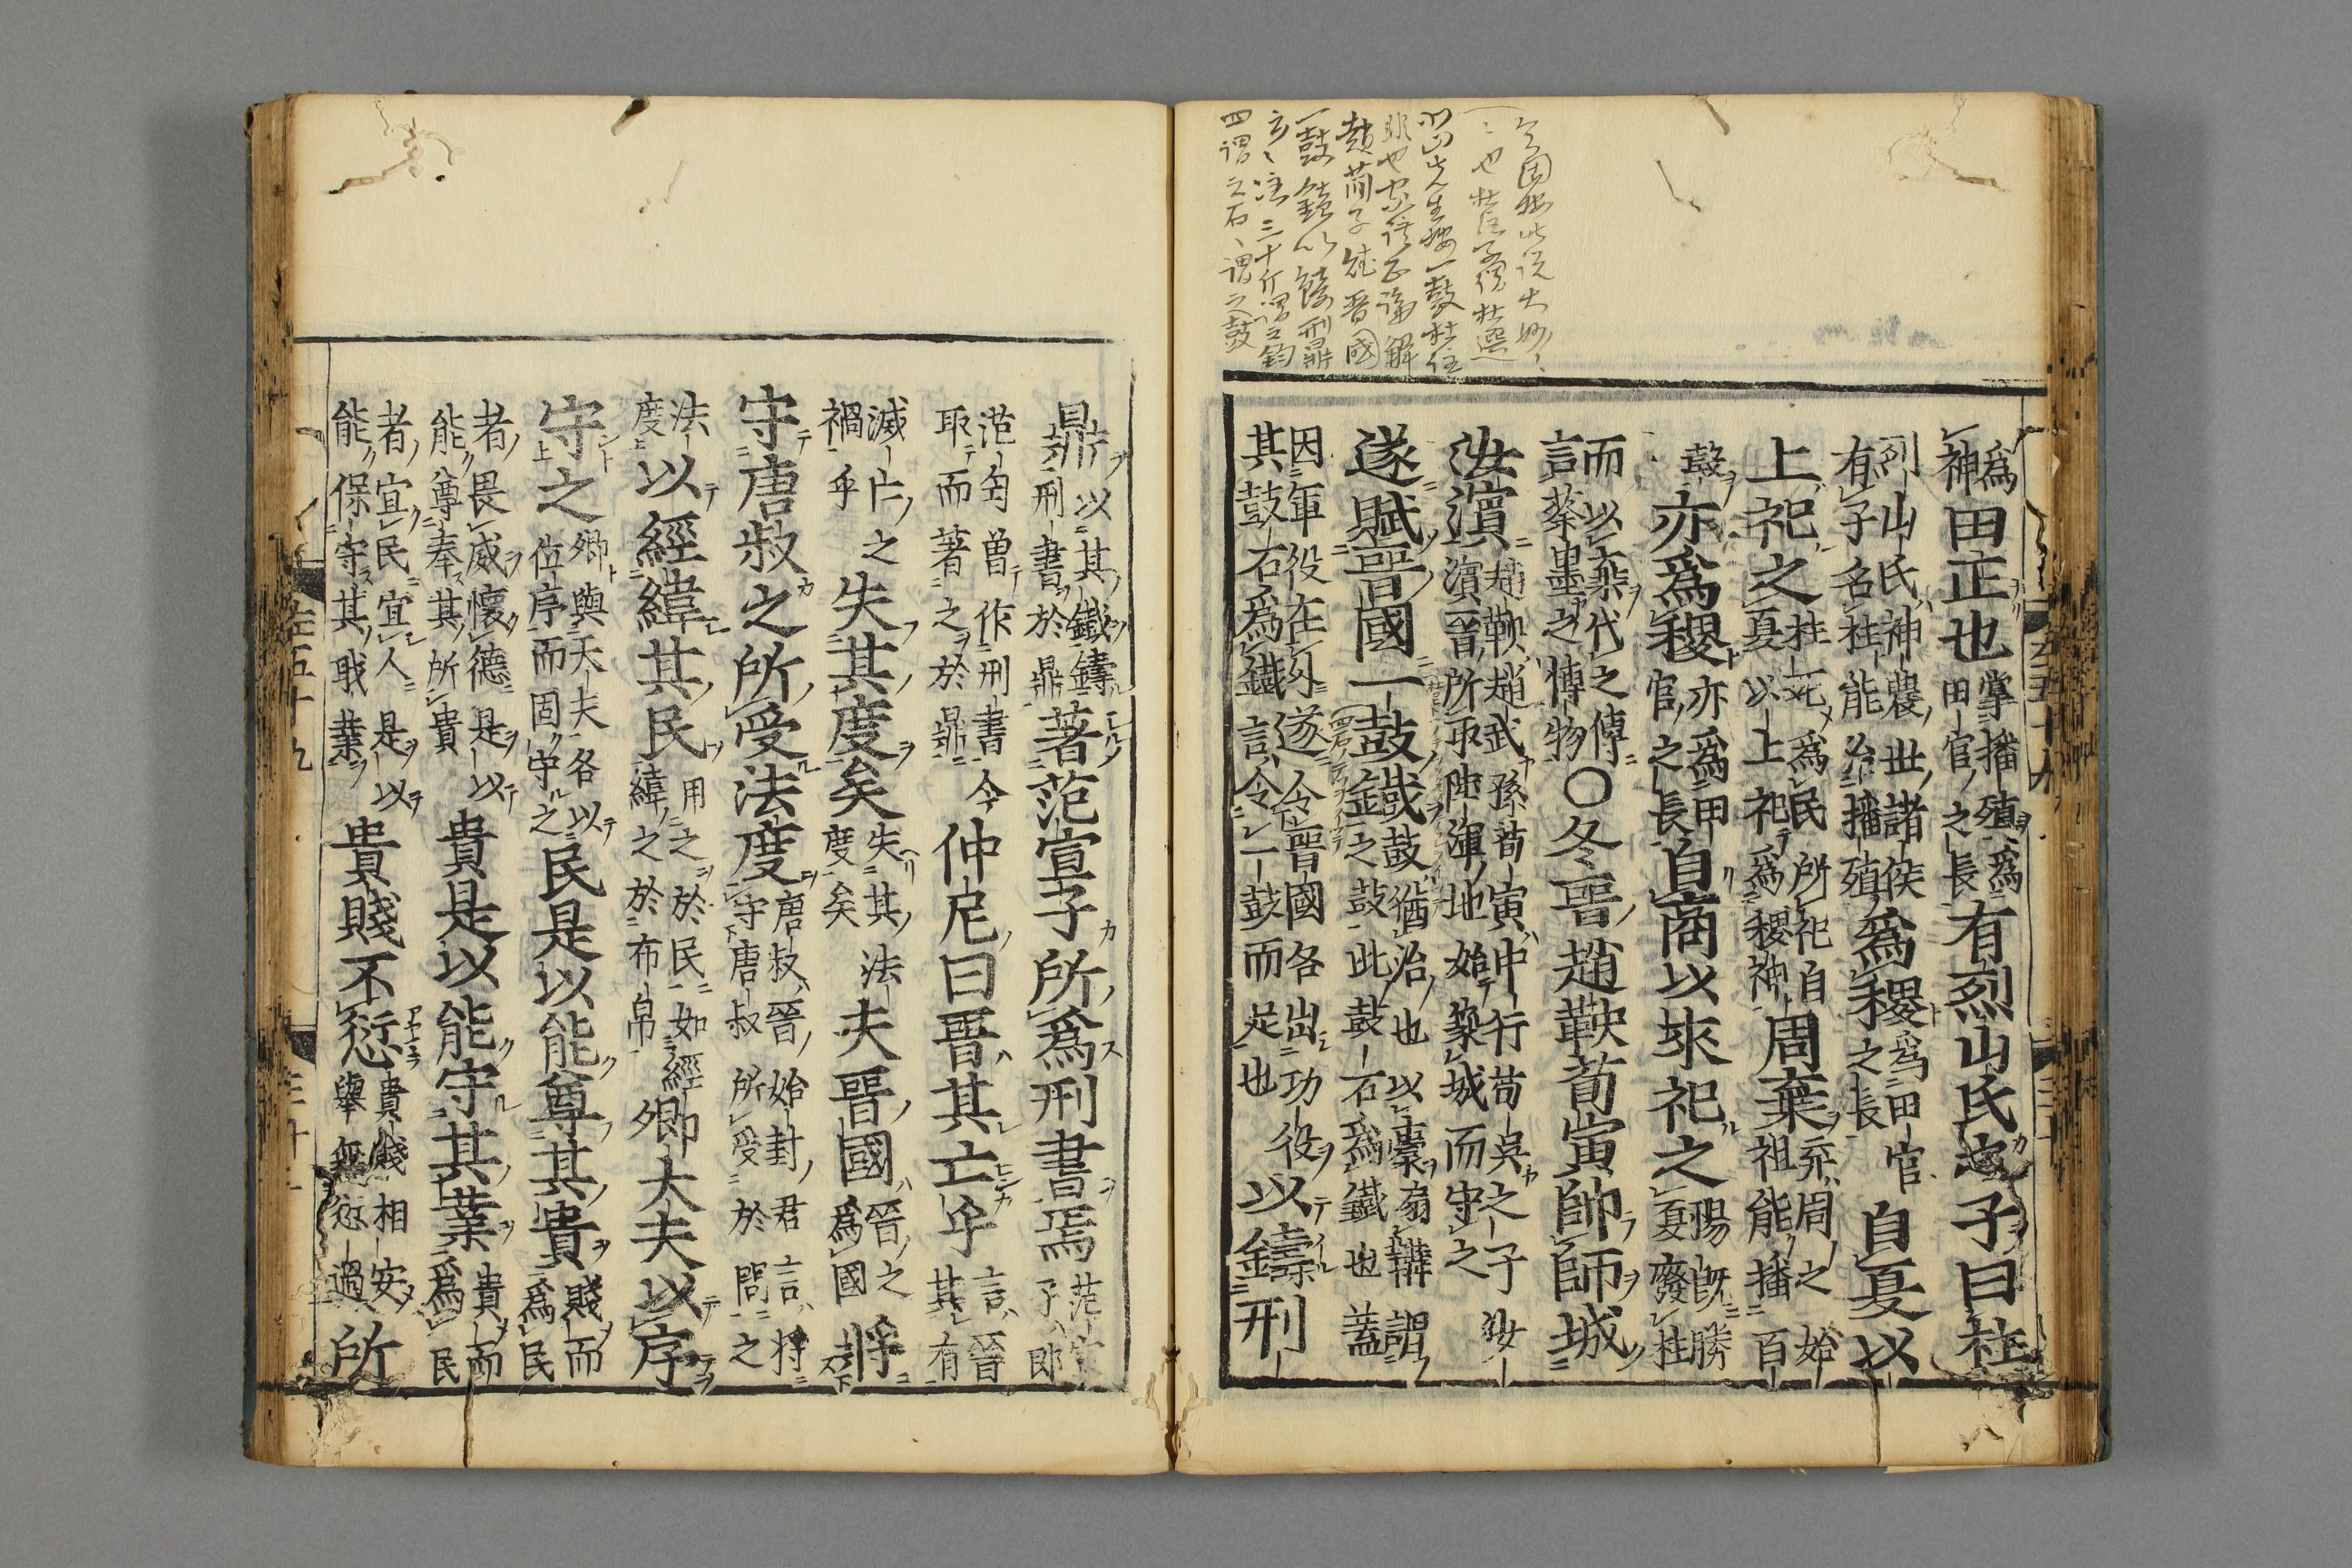 先生按一鼓杜注
非也家語正論解
趙簡子賦晉國
一鼓鐘以鑄刑鼎
云〻注三十斤謂之鈞
四謂之石〻謂之鼓
爲神田正也掌播殖爲田官之長有烈山氏之子曰柱
烈山氏神農世諸侯有子名柱能治播殖爲稷爲田官之長自夏以
上祀之柱死爲民所祀自夏以上祀爲稷神周棄棄周之始祖能播百
穀亦爲稷亦爲田官之長自商以來祀之湯旣勝夏廢柱
而以棄代之傳言蔡墨之博物〇冬晉趙鞅荀寅帥師城
汝濱趙鞅趙武孫荀寅中行荀吳之子汝濱晉所取陸渾地始築城而守之
遂賦晉國一鼓鐵鼓猶治也以橐扇鞴謂之鼓此鼓石爲鐵也蓋
因軍役在外遂令晉國各出功役其鼓石爲鐵言令一鼓而足也以鑄刑
鼎以其鐵鑄刑書於鼎著范宣子所爲刑書焉范宣子即
范匄曽作刑書今取而著之於鼎仲尼曰晉其亡乎言晉其有
滅亡之禍乎失其度矣失其法度矣夫晉國晉之爲國將
守唐叔之所受法度唐叔晉始封君言將守唐叔所受於問之
法度以經緯其民用之於民如經緯之於布帛卿大夫以序
守之卿與大夫各以位序而固守之民是以能尊其貴賤而爲民
者畏威懷德是以能尊奉其所貴貴是以能守其業貴而爲民
者宜民宜人是以能保守其職業貴賤不愆貴賤相安舉無愆過所